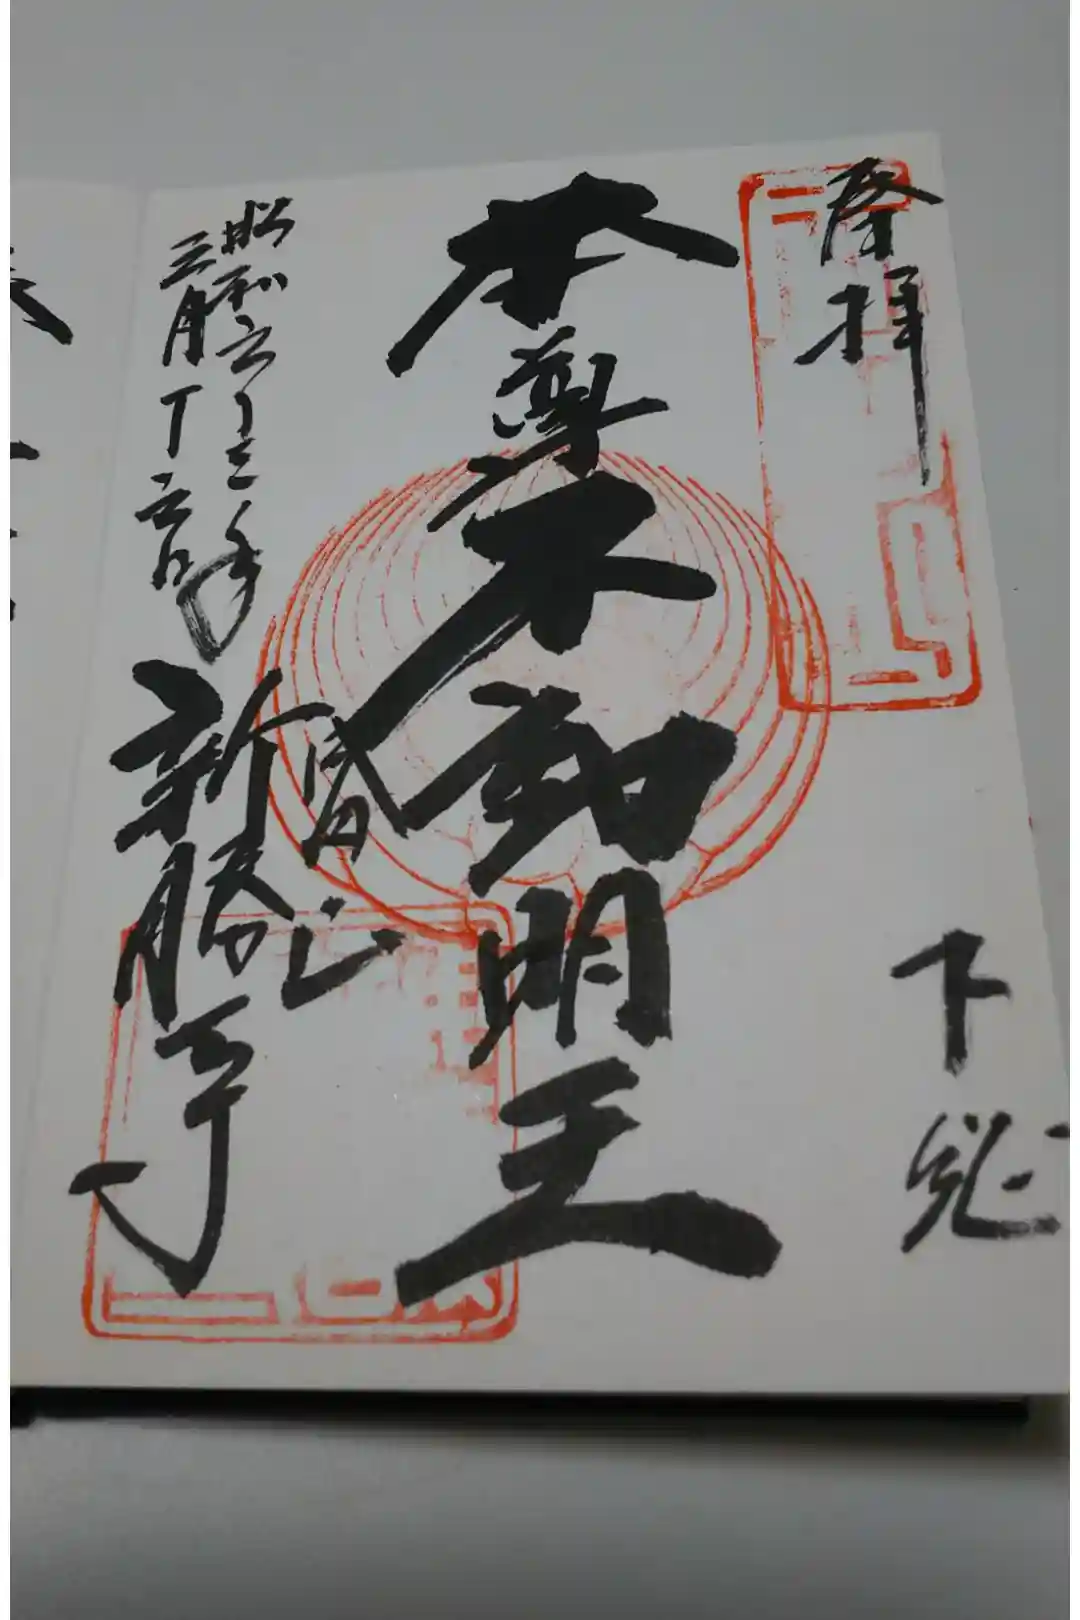 奉拝
下総
本尊不動明王
昭和六十三年
三月十六日
成田山
新勝寺